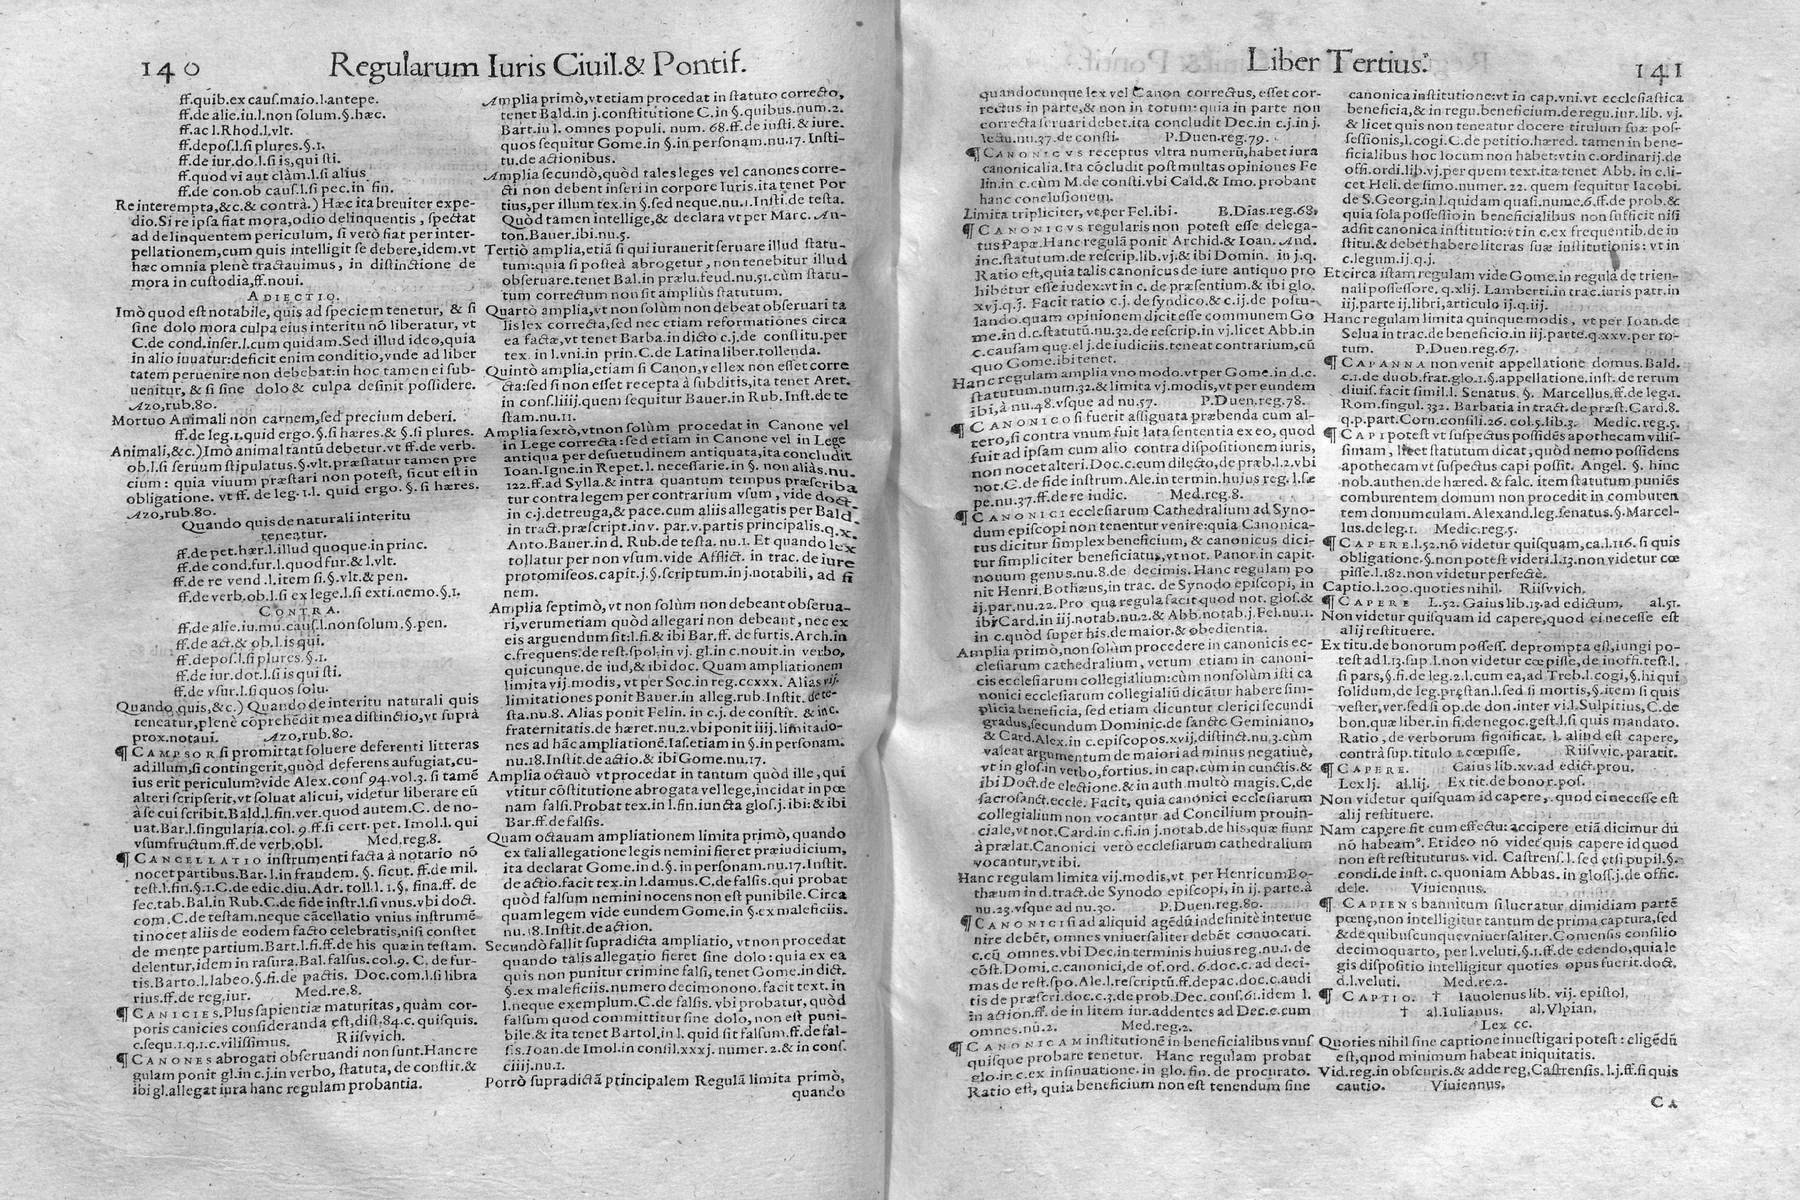 140
Regularum Iuris Ciuil.& Pontif.
ff.quib.ex cauſ.maio.l.antepe.
ff.de alie.iu.l.non ſolum.§.hæc.
ff.ac l.Rhod.l.vlt.
ff.depoſ.l.ſi plures.§.1.
ff.de iur.do.l.ſi is,qui ſti.
ff.quod vi aut clàm.l.ſi alius
ff.de con.ob cauſ.l.ſi pec.in fin.
Re interempta,&c.& contrà.) Hæc ita breuiter expe-
dio.Si re ipſa fiat mora,odio delinquentis , ſpectat
ad delinquentem periculum, ſi verò fiat per inter-
pellationem,cum quis intelligit ſe debere,idem.vt
hæc omnia plenè tractauimus, in diſtinctione de
mora in cuſtodia,ff.noui.
ADIECTIO.
Imò quod eſt notabile, quis ad ſpeciem tenetur, & ſi
ſine dolo mora culpa eius interitu nō liberatur, vt
C.de cond.inſer.l.cum quidam.Sed illud ideo,quia
in alio iuuatur:deficit enim conditio,vnde ad liber
tatem peruenire non debebat:in hoc tamen ei ſub-
uenitur, & ſi ſine dolo & culpa deſinit poſſidere.
Azo,rub.80.
Mortuo Animali non carnem,ſed precium deberi.
ff.de leg.1.quid ergo.§.ſi hæres.& §.ſi plures.
Animali,&c.)Imò animal tantū debetur.vt ff.de verb.
ob.l.ſi ſeruum ſtipulatus.§.vlt.præſtatur tamen pre
cium : quia viuum præſtari non poteſt, ſicut eſt in
obligatione. vt ff. de leg.1.l. quid ergo. §.ſi hæres.
Azo,rub.80.
Quando quis de naturali interitu
teneatur.
ff.de pet.hær.l.illud quoque.in princ.
ff.de cond.fur.l.quod fur.& l.vlt.
ff.de re vend .l.item ſi.§.vlt.& pen.
ff.de verb.ob.l.ſi ex lege.l.ſi exti.nemo.§.1.
CONTRA.
ff.de alie.iu.mu.cauſ.l.non ſolum.§.pen.
ff.de act.& ob.l.is qui.
ff.depoſ.l.ſi plures.§.1.
ff.de iur.dot.l.ſi is qui ſti.
ff.de vſur.l.ſi quos ſolu.
Quando quis,&c.) Quando de interitu naturali quis
teneatur,plenè cōprehēdit mea diſtinctio,vt ſuprà
prox.notaui. Azo,rub.80.
¶ CAMPSOR ſi promittat ſoluere deferenti litteras
ad illum,ſi contingerit,quòd deferens aufugiat,cu-
ius erit periculum?vide Alex.conſ 94.vol.3. ſi tamē
alteri ſcripſerit,vt ſoluat alicui, videtur liberare eū
à ſe cui ſcribit.Bald.l.fin.ver.quod autem.C. de no-
uat.Bar.l.ſingularia.col. 9.ff.ſi cert.pet. Imol.l. qui
vſumfructum.ff.de verb.obl. Med.reg.8.
¶ CANCELLATIO inſtrumenti facta à notario nō
nocet partibus.Bar.l.in fraudem. §. ſicut. ff.de mil.
teſt.l.fin.§.1.C.de edic.diu.Adr. toll.l. 1.§, fina.ff. de
ſec.tab.Bal.in Rub.C.de fide inſtr.l.ſi vnus.vbi doct.
com.C.de teſtam.neque cācellatio vnius inſtrumē
ti nocet aliis de eodem facto celebratis,niſi conſtet
de mente partium.Bart.l.ſi.ff.de his quæ in teſtam.
delentur,idem in raſura.Bal.falſus.col.9. C. de fur-
tis.Barto.l.labeo.§.ſi.de pactis. Doc.com.l.ſi libra
rius.ff.de reg.iur. Med.re.8.
¶ CANICIES.Plus ſapientiæ maturitas, quàm cor-
poris canicies conſideranda eſt,diſt.84.c. quiſquis.
c.ſequ.1.q.1.c.viliſſimus. Riiſvvich.
¶ CANONES abrogati obſeruandi non ſunt.Hanc re
gulam ponit gl.in c.j.in verbo, ſtatuta, de conſtit.&
ibi gl.allegat iura hanc regulam probantia.
Amplia primò,vt etiam procedat in ſtatuto correcto,
tenet Bald.in j.conſtitutione C.in §.quibus.num.2.
Bart.iu l. omnes populi. num. 68.ff.de inſti.& iure.
quos ſequitur Gome.in §.in perſonam.nu.17. Inſti-
tu.de actionibus.
Amplia ſecundò,quòd tales leges vel canones corre-
cti non debent inſeri in corpore Iuris.ita tenet Por
tius,per illum tex.in §.ſed neque.nu.1.Inſti.de teſta.
Quòd tamen intellige,& declara vt per Marc. An-
ton.Bauer.ibi.nu.5.
Tertiò amplia,etiā ſi qui iurauerit ſeruare illud ſtatu-
tum:quia ſi poſteà abrogetur , non tenebitur illud
obſeruare.tenet Bal.in prælu.feud.nu.51.cùm ſtatu-
tum correctum non ſit ampliùs ſtatutum.
Quartò amplia,vt non ſolùm non debeat obſeruari ta
lis lex correcta,ſed nec etiam reformationes circa
ea factæ,vt tenet Barba.in dicto c.j.de conſtitu.per
tex. in l.vni.in prin.C.de Latina liber.tollenda.
Quintò amplia,etiam ſi Canon,vel lex non eſſet corre
cta:ſed ſi non eſſet recepta à ſubditis,ita tenet Aret.
in conſ.liiij.quem ſequitur Bauer.in Rub. Inſt.de te
ſtam.nu.11.
Amplia ſextò,vt non ſolùm procedat in Canone vel
in Lege correcta : ſed etiam in Canone vel in Lege
antiqua per deſuetudinem antiquata,ita concludit
Ioan.Igne.in Repet.l. neceſſarie.in §. non aliàs.nu.
122.ff.ad Sylla.& intra quantum tempus præſcriba
tur contra legem per contrarium vſum , vide doct.
in c.j.detreuga,& pace.cum aliis allegatis per Bald.
in tract.præſcript.in v. par.v.partis principalis.q.x.
Anto.Bauer.in d. Rub.de teſta. nu.1. Et quando lex
tollatur per non vſum.vide Afflict. in trac. de iure
protomiſeos.capit.j.§.ſcriptum.in j.notabili, ad fi
nem.
Amplia ſeptimò,vt non ſolùm non debeant obſerua-
ri,verumetiam quòd allegari non debeant, nec ex
eis arguendum ſit:l.fi.& ibi Bar.ff. de furtis.Arch.in
c.frequens.de reſt.ſpol.in vj. gl.in c.nouit.in verbo,
quicunque.de iud,& ibi doc. Quam ampliationem
limita vij.modis, vt per Soc.in reg.ccxxx. Alias vij.
limitationes ponit Bauer.in alleg.rub.Inſtit. de te-
ſta.nu.8. Alias ponit Felin. in c.j. de conſtit. & in c.
fraternitatis.de hæret.nu.2.vbi ponit iiij.limitado-
nes ad hāc ampliationē.Iaſ.etiam in §.in perſonam.
nu.18.Inſtit.de actio.& ibi Gome.nu.17.
Amplia octauò vt procedat in tantum quòd ille , qui
vtitur cōſtitutione abrogata vel lege,incidat in pœ
nam falſi.Probat tex.in l.fin.iuncta gloſ.j.ibi:& ibi
Bar.ff.de falſis.
Quam octauam ampliationem limita primò, quando
ex tali allegatione legis nemini fieret præiudicium,
ita declarat Gome.in d.§. in perſonam.nu.17.Inſtit.
de actio.facit tex.in l.damus.C.de falſis.qui probat
quòd falſum nemini nocens non eſt punibile. Circa
quam legem vide eundem Gome.in §.ex maleficiis.
nu.18.Inſtit.de action.
Secundò fallit ſupradicta ampliatio, vt non procedat
quando talis allegatio fieret ſine dolo : quia ex ea
quis non punitur crimine falſi, tenet Gome.in dict.
§.ex maleficiis.numero decimonono.facit text. in
l.neque exemplum.C.de falſis. vbi probatur, quòd
falſum quod committitur ſine dolo, non eſt puni-
bile.& ita tenet Bartol.in l. quid ſit falſum.ff.de fal-
ſis.Ioan.de Imol.in conſil.xxxj. numer.2.& in conſ.
ciiij.nu.1.
Porrò ſupradictā principalem Regulā limita primò,
quando
Liber Tertius.
141
quandocunque lex vel Canon correctus, eſſet cor-
rectus in parte,& non in totum: quia in parte non
correcta ſeruari debet.ita concludit Dec.in c.j.in j.
lectu.nu.37.de conſti. P.Duen.reg.79.
¶ CANONICVS receptus vltra numerū,habet iura
canonicalia.Ita cōcludit poſt multas opiniones Fe
lin.in c.cùm M.de conſti.vbi Cald.& Imo. probant
hanc concluſionem.
Limita tripliciter, vt per Fel.ibi. B.Dias.reg.68.
¶ CANONICVS regularis non poteſt eſſe delega-
tus Papæ.Hanc regulā ponit Archid.& Ioan. And.
inc.ſtatutum.de reſcrip.lib.vj.& ibi Domin. in j.q.
Ratio eſt,quia talis canonicus de iure antiquo pro
hibetur eſſe iudex:vt in c. de præſentium.& ibi glo.
xvj.q.j. Facit ratio c.j. de ſyndico.& c.ij.de poſtu-
lando.quam opinionem dicit eſſe communem Go
me.in d.c.ſtatutū.nu.32.de reſcrip.in vj.licet Abb.in
c.cauſam que.el j.de iudiciis.teneat contrarium,cū
quo Gome.ibi tenet.
Hanc regulam amplia vno modo.vt per Gome.in d.c.
ſtatutum.num.32.& limita vj.modis,vt per eundem
ibi,à nu.48.vſque ad nu.57. P.Duen.reg.78.
¶ CANONICO ſi fuerit aſſignata præbenda cum al-
tero,ſi contra vnum fuit lata ſententia ex eo, quod
fuit ad ipſam cum alio contra diſpoſitionem iuris,
non nocet alteri. Doc.c.cum dilecto,de præb.l.2.vbi
not.C.de fide inſtrum.Ale.in termin.hujus reg. l.ſæ
pe.nu.37.ff.de re iudic. Med.reg.8.
¶ CANONICI eccleſiarum Cathedralium ad Syno-
dum epiſcopi non tenentur venire:quia Canonica-
tus dicitur ſimplex beneficium, & canonicus dici-
tur ſimpliciter beneficiatus,vt not. Panor.in capit.
nouum genus.nu.8.de decimis. Hanc regulam po
nit Henri. Bothæus,in trac. de Synodo epiſcopi, in
ij.par.nu.22.Pro qua regula facit quod not. gloſ.&
ibi Card.in iij.notab.nu.2.& Abb.notab.j.Fel.nu.1.
in c.quòd ſuper his.de maior.& obedientia.
Amplia primò,non ſolùm procedere in canonicis ec-
cleſiarum cathedralium, verum etiam in canoni-
cis eccleſiarum collegialium:cùm non ſolùm iſti ca
nonici eccleſiarum collegialiū dicātur habere ſim-
plicia beneficia, ſed etiam dicuntur clerici ſecundi
gradus,ſecundum Dominic.de ſancto Geminiano,
& Card.Alex.in c.epiſcopos.xvij.diſtinct.nu.3.cùm
valeat argumentum de maiori ad minus negatiuè,
vt in gloſ.in verbo,fortius.in cap.cùm in cunctis.&
ibi Doct.de electione.& in auth.multò magis.C.de
ſacroſanct.eccle. Facit, quia canonici eccleſiarum
collegialium non vocantur ad Concilium prouin-
ciale,vt not.Card.in c.fi.in j.notab.de his,quæ fiunt
à prælat.Canonici verò eccleſiarum cathedralium
vocantur,vt ibi.
Hanc regulam limita vij.modis,vt per Henricum Bo-
thæum in d.tract.de Synodo epiſcopi, in ij. parte.à
nu.23.vſque ad nu.30. P.Duen.reg.80.
¶ CANONICI ſi ad aliquid agēdū indefinitè interue
nire debēt, omnes vniuerſaliter debēt conuocari.
c.cū omnes.vbi Dec.in terminis huius reg.nu.1. de
cōſt.Domi.c.canonici,de of.ord. 6.doc.c. ad deci-
mas de reſt.ſpo.Ale.l.reſcriptū.ff.depac.doc.c.audi
tis de præſcri.doc.c.3.de prob.Dec.conſ.61.idem l.
in action.ff.de in litem iur.addentes ad Dec.e.cum
omnes.nū.2. Med.reg.2.
¶ CANONICAM inſtitutionē in beneficialibus vnuſ
quiſque probare tenetur. Hanc regulam probat
glo.in c.ex inſinuatione. in glo. fin. de procurato.
Ratio eſt, quia beneficium non eſt tenendum ſine
canonica inſtitutione:vt in cap.vni.vt eccleſiaſtica
beneficia,& in regu.beneficium.de regu.iur. lib. vj.
& licet quis non teneatur docere titulum ſuæ poſ-
ſeſſionis,l.cogi.C.de petitio.hæred. tamen in bene-
ficialibus hoc locum non habet:vt in c.ordinarij.de
offi.ordi.lib.vj.per quem text.ita tenet Abb. in c.li-
cet Heli.de ſimo.numer. 22. quem ſequitur Iacobi.
de S.Georg.in l.quidam quaſi.nume.6.ff.de prob.&
quia ſola poſſeſſio in beneficialibus non ſufficit niſi
adſit canonica inſtitutio:vt in c.ex frequentib.de in
ſtitu.& debet habere literas ſuæ inſtitutionis: vt in
c.legum.ij.q.j.
Et circa iſtam regulam vide Gome.in regula de trien-
nali poſſeſſore. q.xlij. Lamberti.in trac.iuris patr.in
iij.parte ij.libri, articulo ij.q.iij.
Hanc regulam limita quinque modis , vt per Ioan.de
Selua in trac.de beneficio.in iij.parte.q.xxv.per to-
tum. P.Duen.reg.67.
¶ CAPANNA non venit appellatione domus. Bald.
c.1.de duob.frat.glo.1.§.appellatione.inſt. de rerum
diuiſ.facit ſimil.l. Senatus. §. Marcellus.ff.de leg.1.
Rom.ſingul. 332. Barbatia in tract. de præſt.Card.8.
q.p.part.Corn.conſili.26. col.5.lib.3. Medic.reg.5.
¶ CAPI poteſt vt ſuſpectus poſſidēs apothecam viliſ-
ſimam, licet ſtatutum dicat, quòd nemo poſſidens
apothecam vt ſuſpectus capi poſſit. Angel. §. hinc
nob.authen.de hæred. & falc. item ſtatutum puniēs
comburentem domum non procedit in comburen
tem domumculam.Alexand.leg.ſenatus.§.Marcel-
lus.de leg.1. Medic.reg.5.
¶ CAPERE.l.52.nō videtur quiſquam,ca.l.116. ſi quis
obligatione.§.non poteſt videri.l.13.non videtur cœ
piſſe.l.182.non videtur perfectè.
Captio.l.200.quoties nihil. Riiſvvich.
¶ CAPERE L.52. Gaius lib.13.ad edictum, al.51.
Non videtur quiſquam id capere,quod ei neceſſe eſt
alij reſtituere.
Ex titu.de bonorum poſſeſſ. deprompta eſt,iungi po-
teſt ad l.13.ſup.l.non videtur cœpiſſe,de inoffi.teſt.l.
ſi pars,§.fi.de leg.2.l.cum ea,ad Treb.l.cogi,§.hi qui
ſolidum,de leg.præſtan.l.ſed ſi mortis,§.item ſi quis
veſter,ver.ſed ſi op.de don.inter vi.l.Sulpitius,C.de
bon.quæ liber.in fi.de negoc.geſt.l.ſi quis mandato.
Ratio , de verborum ſignificat. l. aliud eſt capere,
contrà ſup.titulo 1.cœpiſſe. Riiſvvic.paratit.
¶ CAPERE. Caius lib.xv.ad edict.prou.
Lex lj. al.lij. Ex tit.de bonor.poſ.
Non videtur quiſquam id capere, quod ei neceſſe eſt
alij reſtituere.
Nam capere ſit cum effectu: accipere etiā dicimur dū
nō habeamꝰ. Et ideo nō videt quis capere id quod
non eſt reſtituturus. vid. Caſtrenſ.l. ſed etſi pupil.§.
condi.de inſt. c. quoniam Abbas. in gloſſ.j.de offic.
dele. Viuiennus.
¶ CAPIENS bannitum ſi lucratur dimidiam partē
pœnę,non intelligitur tantum de prima captura,ſed
& de quibuſcunque vniuerſaliter. Comenſis conſilio
decimoquarto, per l.veluti.§.1.ff.de edendo,quia le
gis diſpoſitio intelligitur quoties opus fuerit.doct.
d.l.veluti. Med.re.2.
¶ CAPTIO. † Iauolenus lib. vij. epiſtol,
† al.Iulianus. al.Vlpian.
Lex cc.
Quoties nihil ſine captione inueſtigari poteſt: eligēdū
eſt,quod minimum habeat iniquitatis.
Vid.reg.in obſcuris.& adde reg.Caſtrenſis. l.j.ff.ſi quis
cautio. Viuiennus.
CA